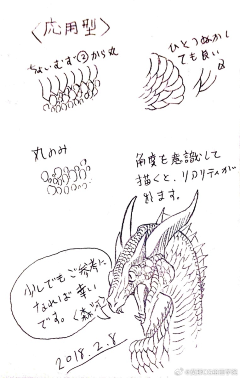 〈応用型〉
から丸
ひとつぬかし
ても良い
丸のみ
角度を意識して
描くと、リアリティが
出ます。
少しでもご参考に
なれば幸い
です。
2018.2.8